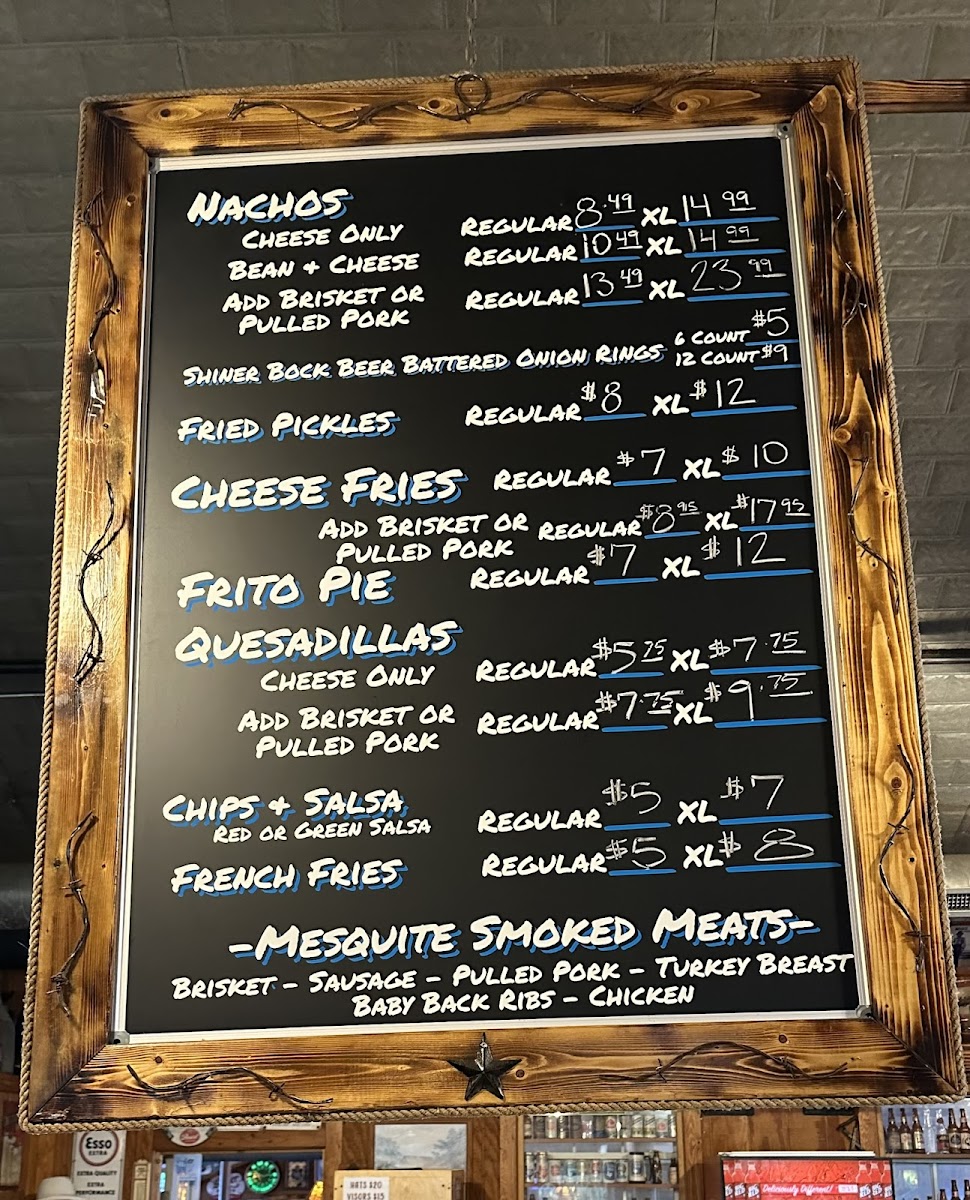 NACHOS
CHEESE ONLY REGULAR 8.49 XL 14 99
BEAN & CHEESE REGULAR 10 49 XL 14 99
ADD BRISKET OR
PULLED PORK REGULAR 13 49 XL 23 99
SHINER BOCK BEER BATTERED ONION RINGS 6 COUNT $5
12 COUNT $9
FRIED PICKLES REGULAR $8 XL $12
CHEESE FRIES REGULAR $7 XL $10
ADD BRISKET OR
PULLED PORK REGULAR $8 95 XL $17 95
FRITO PIE REGULAR $7 XL $12
QUESADILLAS
CHEESE ONLY REGULAR $5 75 XL $7.75
ADD BRISKET OR
PULLED PORK REGULAR $7.75 XL $9.75
CHIPS & SALSA REGULAR $5 XL $7
RED OR GREEN SALSA
FRENCH FRIES REGULAR $5 XL $8
-MESQUITE SMOKED MEATS-
BRISKET - SAUSAGE - PULLED PORK - TURKEY BREAST
BABY BACK RIBS - CHICKEN
Esso
EXTRA
EXTRA QUALITY
EXTRA
PERFORMANCE
HATS $20
VISORS $15
Deliciously Different!